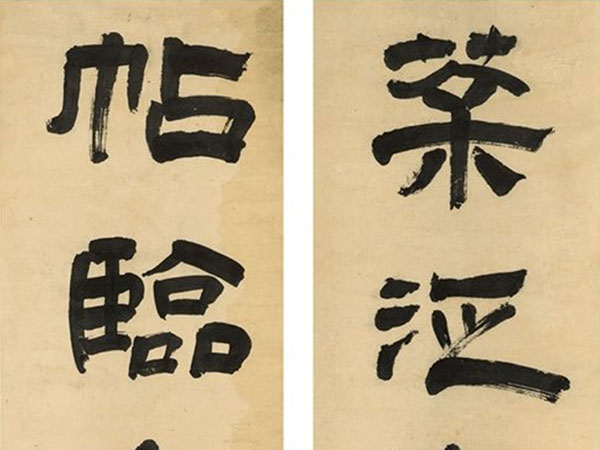 茶泛
帖臨